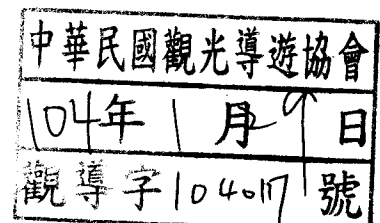 中華民國觀光導遊協會
104年1月9日
觀導字104017號